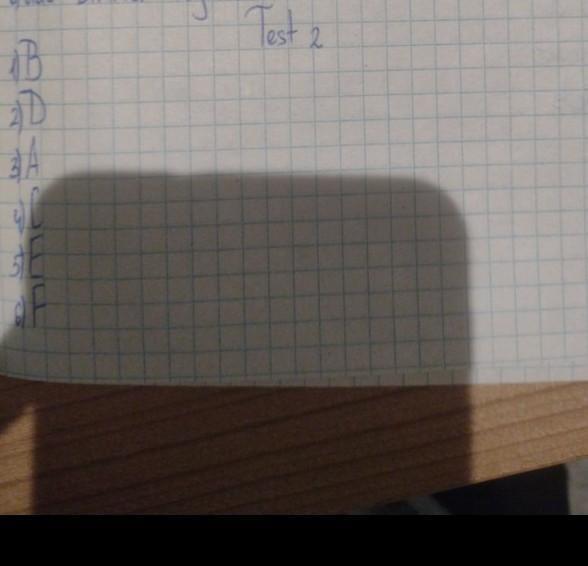 Test 2
1) B
2) D
3) A
4) C
5) E
6) F